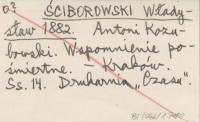 ŚCIBOROWSKI Włady-
sław 1882. Antoni Kozu-
bowski. Wspomnienie po-
śmiertne. – Kraków.
Ss. 14. Drukarnia „Czasu".